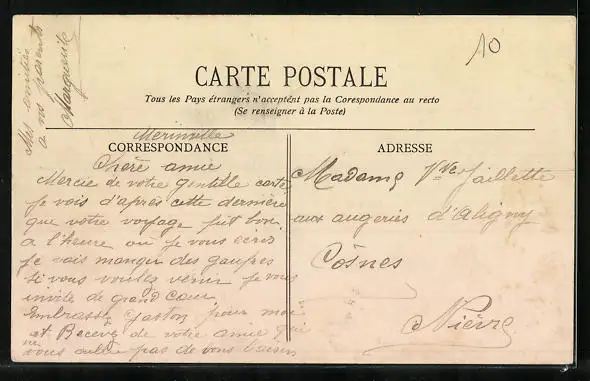 10
CARTE POSTALE
Tous les Pays étrangers n'acceptent pas la Corespondance au recto
(Se renseigner à la Poste)
Mes amitiés
a vos parents
Marguerite
Merinville
CORRESPONDANCE
Chère amie
Mercie de votre gentille carte
je vois d'après cette dernière
que votre voyage fut bon.
a l'heure ou je vous écris
je vais manger des gaufres
si vous voulez venir je vous
invite de grand Cœur
Embrassez Gaston pour moi
et Recevez de votre amie qui
ne
vous oublie pas de bons baisers
ADRESSE
Madame Vve Jaillette
aux augeries d'Aligny
Cosnes
Nièvre